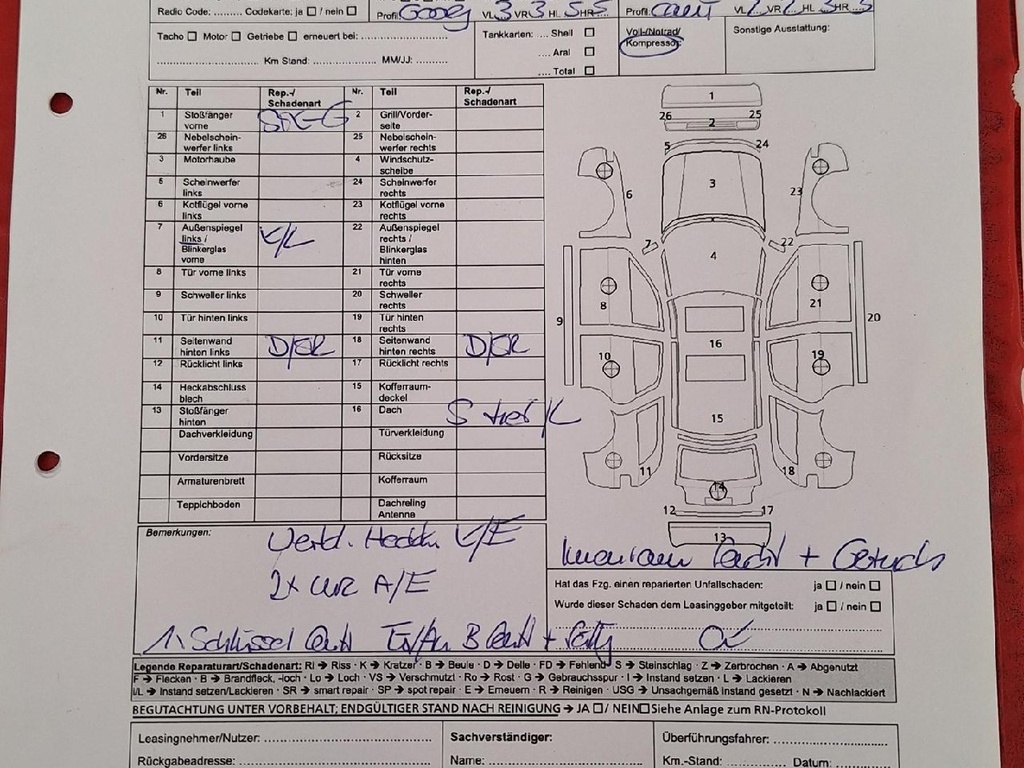 Radio Code: ......... Codekarte: ja ☐ / nein ☐
Profil VL 3 VR 3 HL 5 HR 5
Profil VL HL 3 HR
Tacho ☐ Motor ☐ Getriebe ☐ erneuert bei:
Km Stand: MM/JJ:
Tankkarten: .... Shell ☐
.... Aral ☐
.... Total ☐
Voll-/Notrad/
Kompressor
Sonstige Ausstattung:
Nr. Teil Rep.-/Schadenart Nr. Teil Rep.-/Schadenart
1 Stoßfänger vorne 2 Grill/Vorder-seite
26 Nebelschein-werfer links 25 Nebelschein-werfer rechts
3 Motorhaube 4 Windschutz-scheibe
5 Scheinwerfer links 24 Scheinwerfer rechts
6 Kotflügel vorne links 23 Kotflügel vorne rechts
7 Außenspiegel links / Blinkerglas vorne K/L 22 Außenspiegel rechts / Blinkerglas hinten
8 Tür vorne links 21 Tür vorne rechts
9 Schweller links 20 Schweller rechts
10 Tür hinten links 19 Tür hinten rechts
11 Seitenwand hinten links D/SR 18 Seitenwand hinten rechts D/SR
12 Rücklicht links 17 Rücklicht rechts
14 Heckabschluss blech 15 Kofferraum-deckel
13 Stoßfänger hinten 16 Dach
Dachverkleidung Türverkleidung
Vordersitze Rücksitze
Armaturenbrett Kofferraum
Teppichboden Dachreling Antenne
1
26 25
2
5 24
3
6 23
7 22
4
8 21
9 20
16
10 19
15
11 18
14
12 17
13
Bemerkungen:
K/E
2x A/E
1x Schlüssel
+ Geruch
Hat das Fzg. einen reparierten Unfallschaden: ja ☐ / nein ☐
Wurde dieser Schaden dem Leasinggeber mitgeteilt: ja ☐ / nein ☐
Legende Reparaturart/Schadenart: RI → Riss · K → Kratzer · B → Beule · D → Delle · FD → Fehlend · S → Steinschlag · Z → Zerbrochen · A → Abgenutzt
F → Flecken · B → Brandfleck, -loch · Lo → Loch · VS → Verschmutzt · Ro → Rost · G → Gebrauchsspur · I → Instand setzen · L → Lackieren
I/L → Instand setzen/Lackieren · SR → smart repair · SP → spot repair · E → Erneuern · R → Reinigen · USG → Unsachgemäß Instand gesetzt · N → Nachlackiert
BEGUTACHTUNG UNTER VORBEHALT; ENDGÜLTIGER STAND NACH REINIGUNG → JA ☐/ NEIN☐ Siehe Anlage zum RN-Protokoll
Leasingnehmer/Nutzer: Sachverständiger: Überführungsfahrer:
Rückgabeadresse: Name: Km.-Stand: Datum: